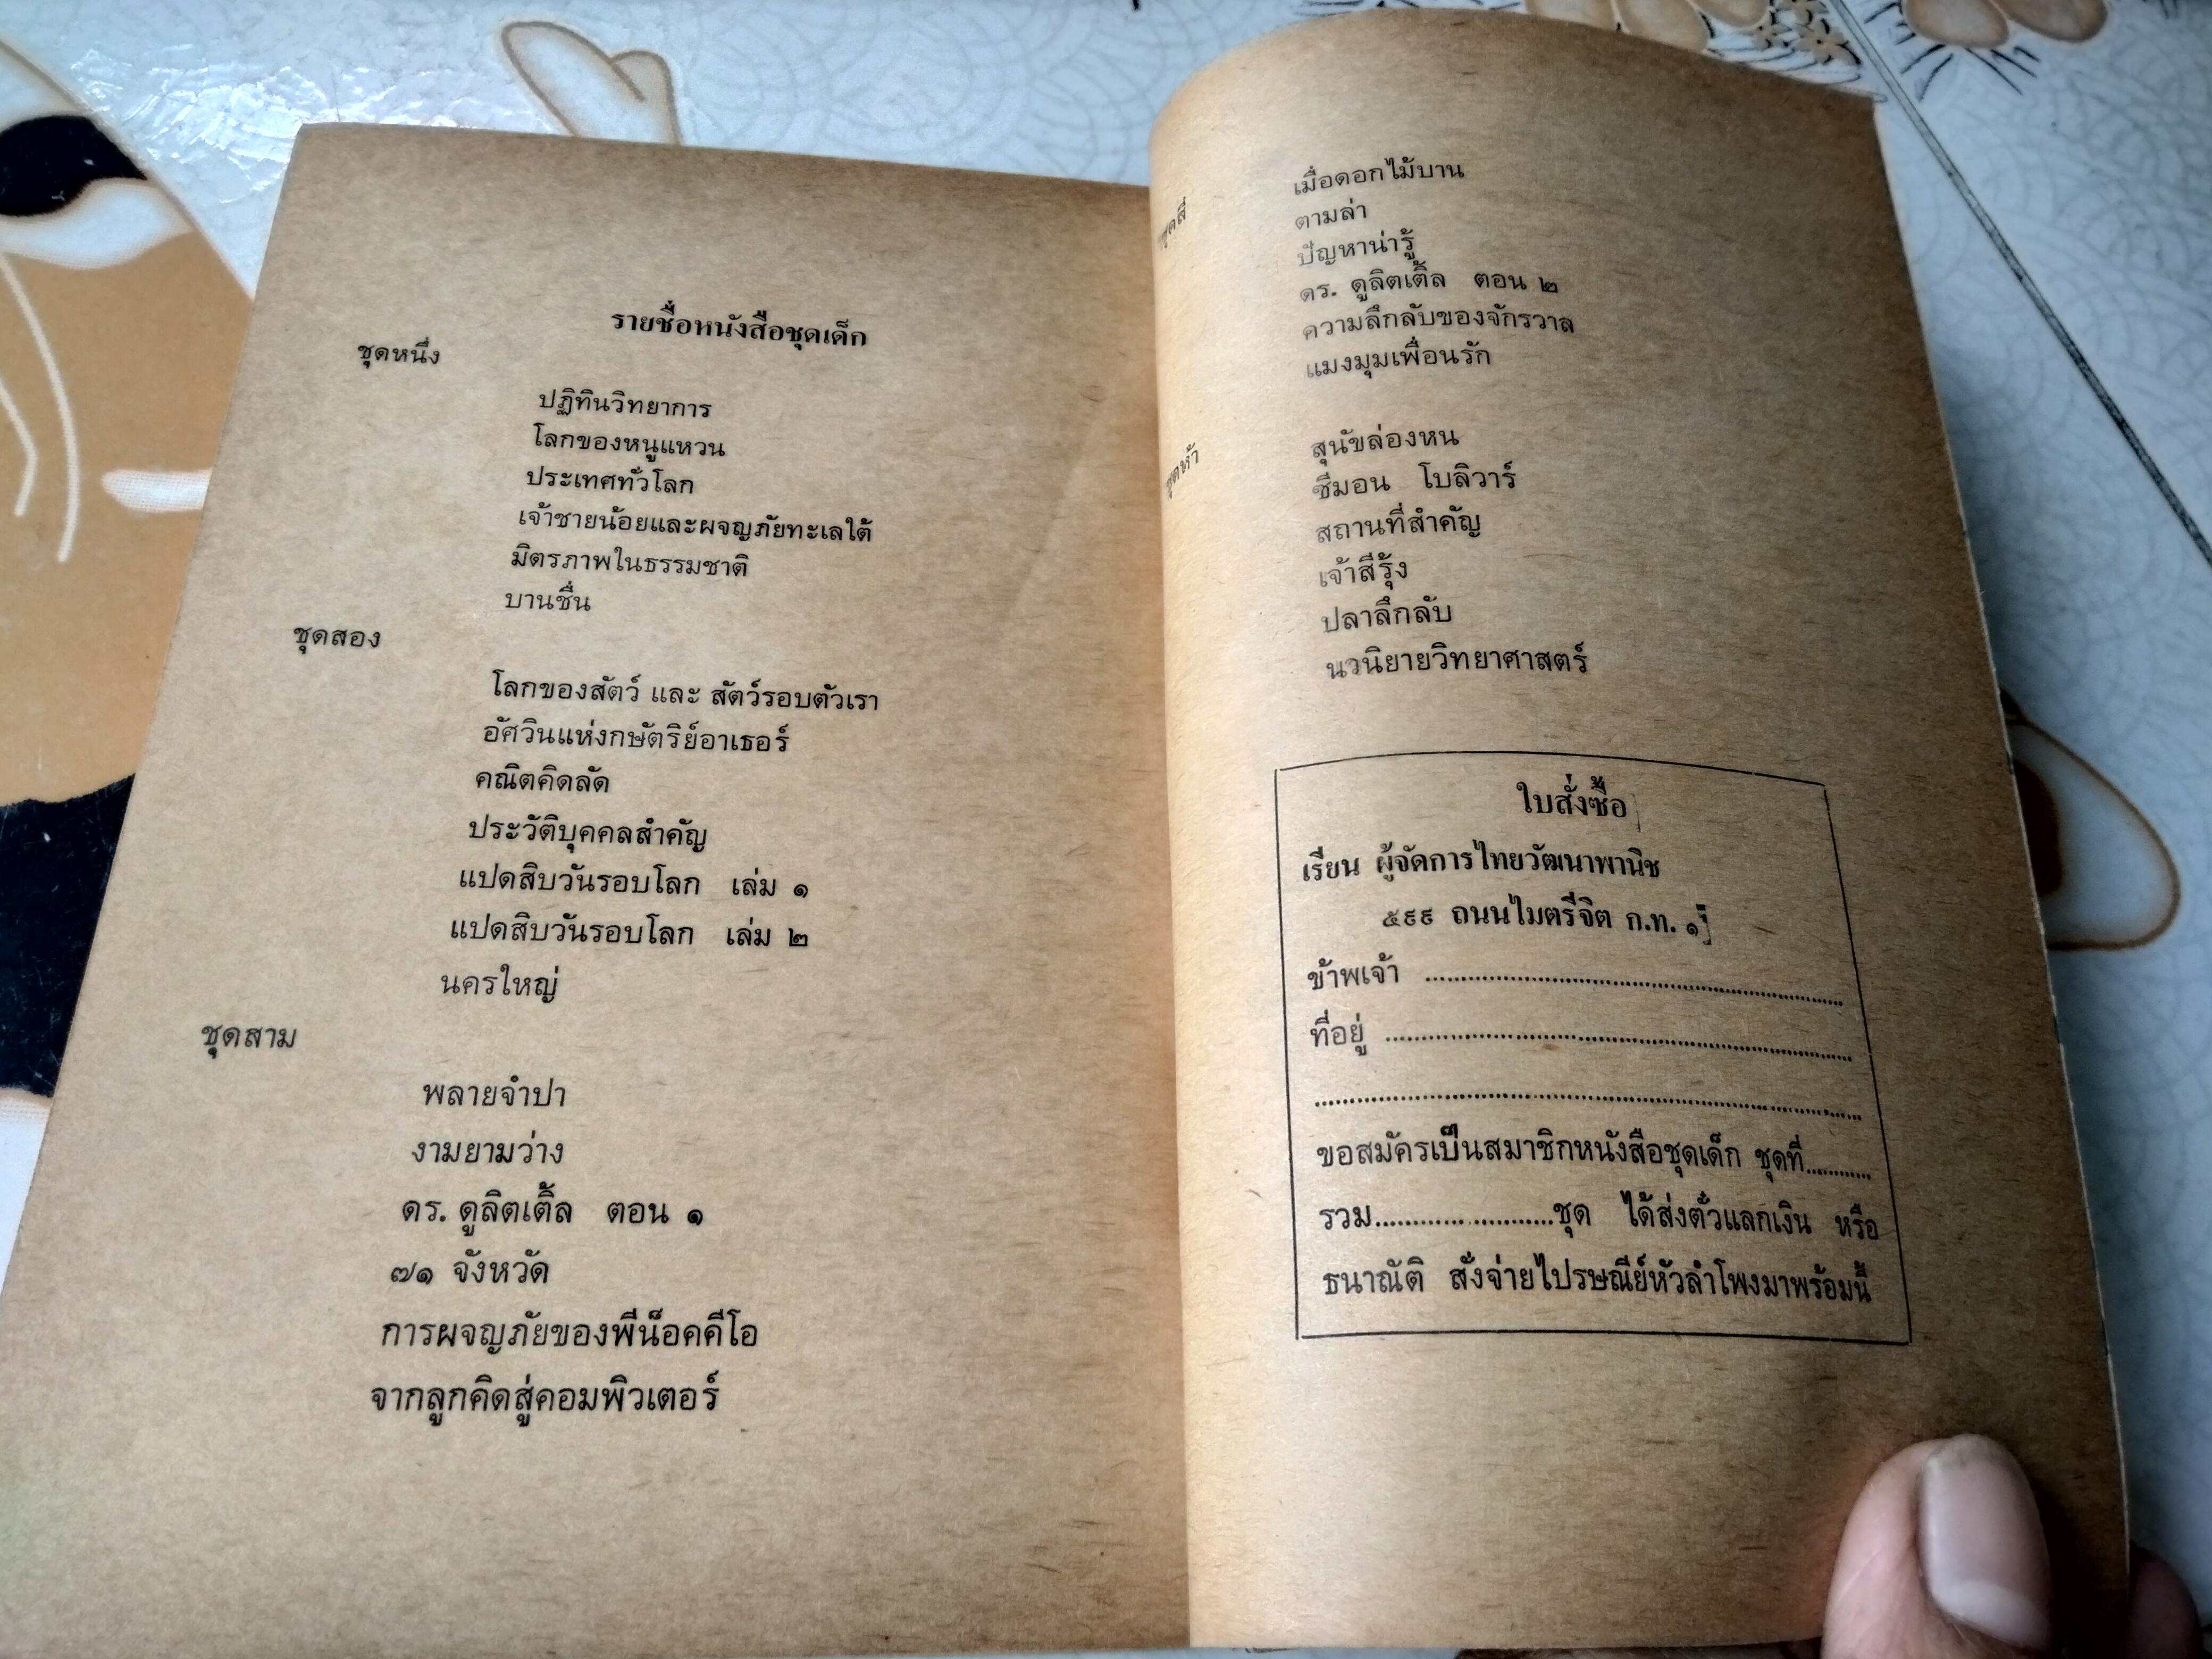 รายชื่อหนังสือชุดเด็ก
ชุดหนึ่ง
ปฏิทินวิทยาการ
โลกของหนูแหวน
ประเทศทั่วโลก
เจ้าชายน้อยและผจญภัยทะเลใต้
มิตรภาพในธรรมชาติ
บานชื่น
ชุดสอง
โลกของสัตว์ และ สัตว์รอบตัวเรา
อัศวินแห่งกษัตริย์อาเธอร์
คณิตคิดลัด
ประวัติบุคคลสำคัญ
แปดสิบวันรอบโลก เล่ม ๑
แปดสิบวันรอบโลก เล่ม ๒
นครใหญ่
ชุดสาม
พลายจำปา
งามยามว่าง
ดร. ดูลิตเติ้ล ตอน ๑
๗๑ จังหวัด
การผจญภัยของพีน็อคคีโอ
จากลูกคิดสู่คอมพิวเตอร์
ชุดสี่
เมื่อดอกไม้บาน
ตามล่า
ปัญหาน่ารู้
ดร. ดูลิตเติ้ล ตอน ๒
ความลึกลับของจักรวาล
แมงมุมเพื่อนรัก
ชุดห้า
สุนัขล่องหน
ซีมอน โบลิวาร์
สถานที่สำคัญ
เจ้าสีรุ้ง
ปลาลึกลับ
นวนิยายวิทยาศาสตร์
ใบสั่งซื้อ
เรียน ผู้จัดการไทยวัฒนาพานิช
๕๙๙ ถนนไมตรีจิต ก.ท. ๑
ข้าพเจ้า ........................................
ที่อยู่ ........................................
........................................
ขอสมัครเป็นสมาชิกหนังสือชุดเด็ก ชุดที่...........
รวม........................ชุด ได้ส่งตั๋วแลกเงิน หรือ
ธนาณัติ สั่งจ่ายไปรษณีย์หัวลำโพงมาพร้อมนี้